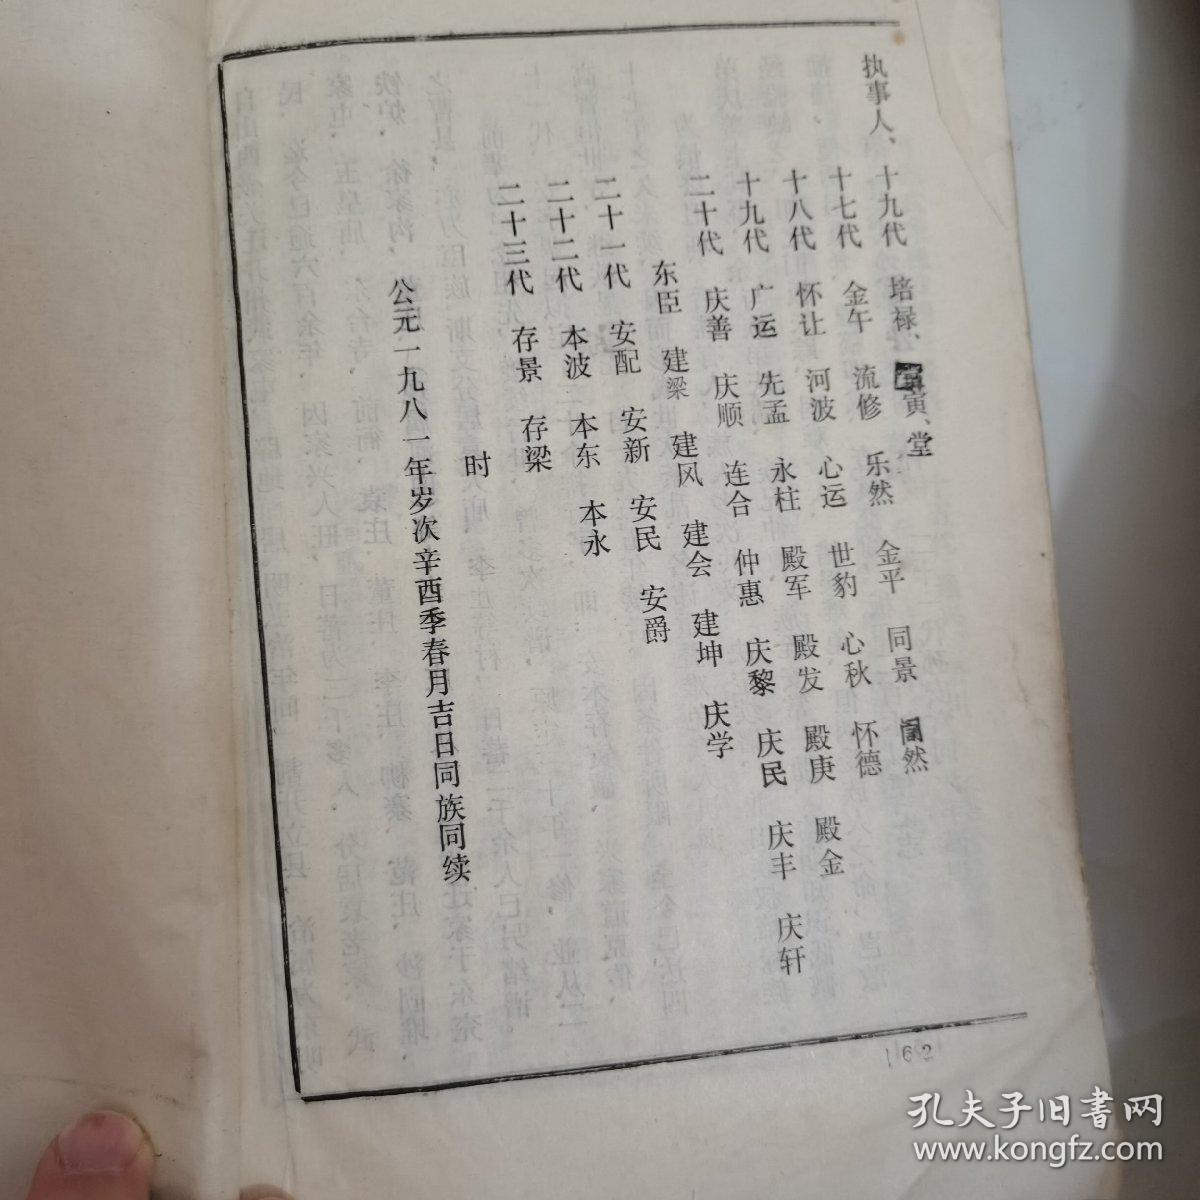 执事人、十九代 培禄、寅、堂
十七代 金午 流修 乐然 金平 同景 然
十八代 怀让 河波 心运 世豹 心秋 怀德
十九代 广运 先孟 永柱 殿军 殿发 殿庚 殿金
二十代 庆善 庆顺 连合 仲惠 庆黎 庆民 庆丰 庆轩
东臣 建梁 建风 建会 建坤 庆学
二十一代 安配 安新 安民 安爵
二十二代 本波 本东 本永
二十三代 存景 存梁
时
公元一九八一年岁次辛酉季春月吉日同族同续
162
孔夫子旧书网
www.kongfz.com